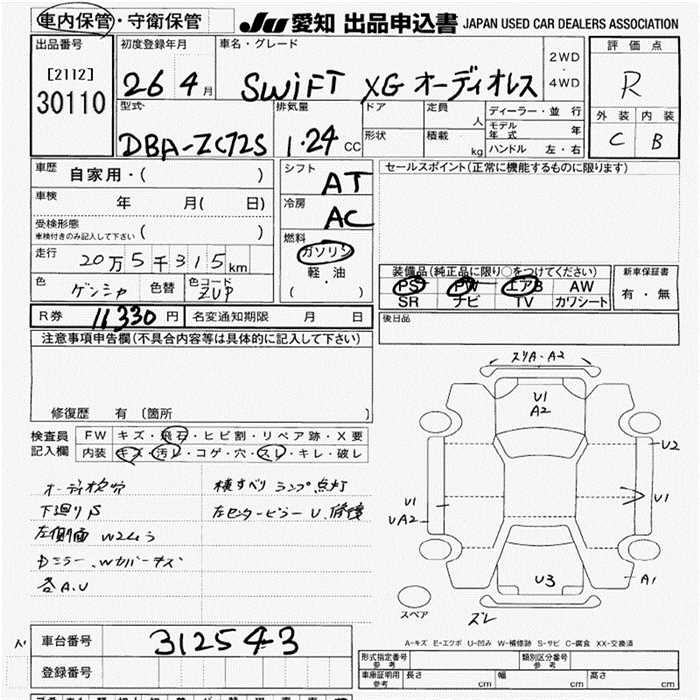 車内保管・守衛保管
JU 愛知 出品申込書 JAPAN USED CAR DEALERS ASSOCIATION
出品番号
[2112]
30110
初度登録年月
26 4月
車名・グレード
SWIFT XG オーディオレス
2WD
・
4WD
評価点
R
外装 内装
C B
型式
DBA-ZC72S
排気量
1.24 CC
ドア
形状
定員 人
積載 kg
ディーラー・並行
モデル年式 年
ハンドル 左・右
車歴 自家用・( )
車検 年 月( 日)
受検形態
車検付きのみ記入して下さい ( )
走行 20万5千315km
色 ゲンシャ 色替 色コード ZUP
シフト AT
冷房 AC
燃料
ガソリン
軽・油
( ・ )
セールスポイント(正常に機能するものに限ります)
装備品(純正品に限り○をつけてください)
PS PW エアB AW
SR ナビ TV カワシート
新車保証書
有・無
R券 11330円 名変通知期限 月 日
後日品
注意事項申告欄(不具合内容等は具体的に記入して下さい)
修復歴 有 〔箇所
検査員記入欄
FW キズ・飛石・ヒビ割・リペア跡・X要
内装 キズ・汚レ・コゲ・穴・スレ・キレ・破レ
オーディオ欠穴
下廻りS
左側面 W2ムラ
Dミラー、Wカバーキズ
各A.U
横すべりランプ点灯
左センターピラーU、修援
スリA・A2
U1
A2
U2
U1
U1
UA2
U3
A1
スペア
ズレ
A-キズ E-エクボ U-凹み W-補修跡 S-サビ C-腐食 XX-交換済
車台番号 312543
登録番号
形式指定番号 参考
類別区分番号 参考
車庫証明用 参考 長さ cm 幅 cm 高さ cm